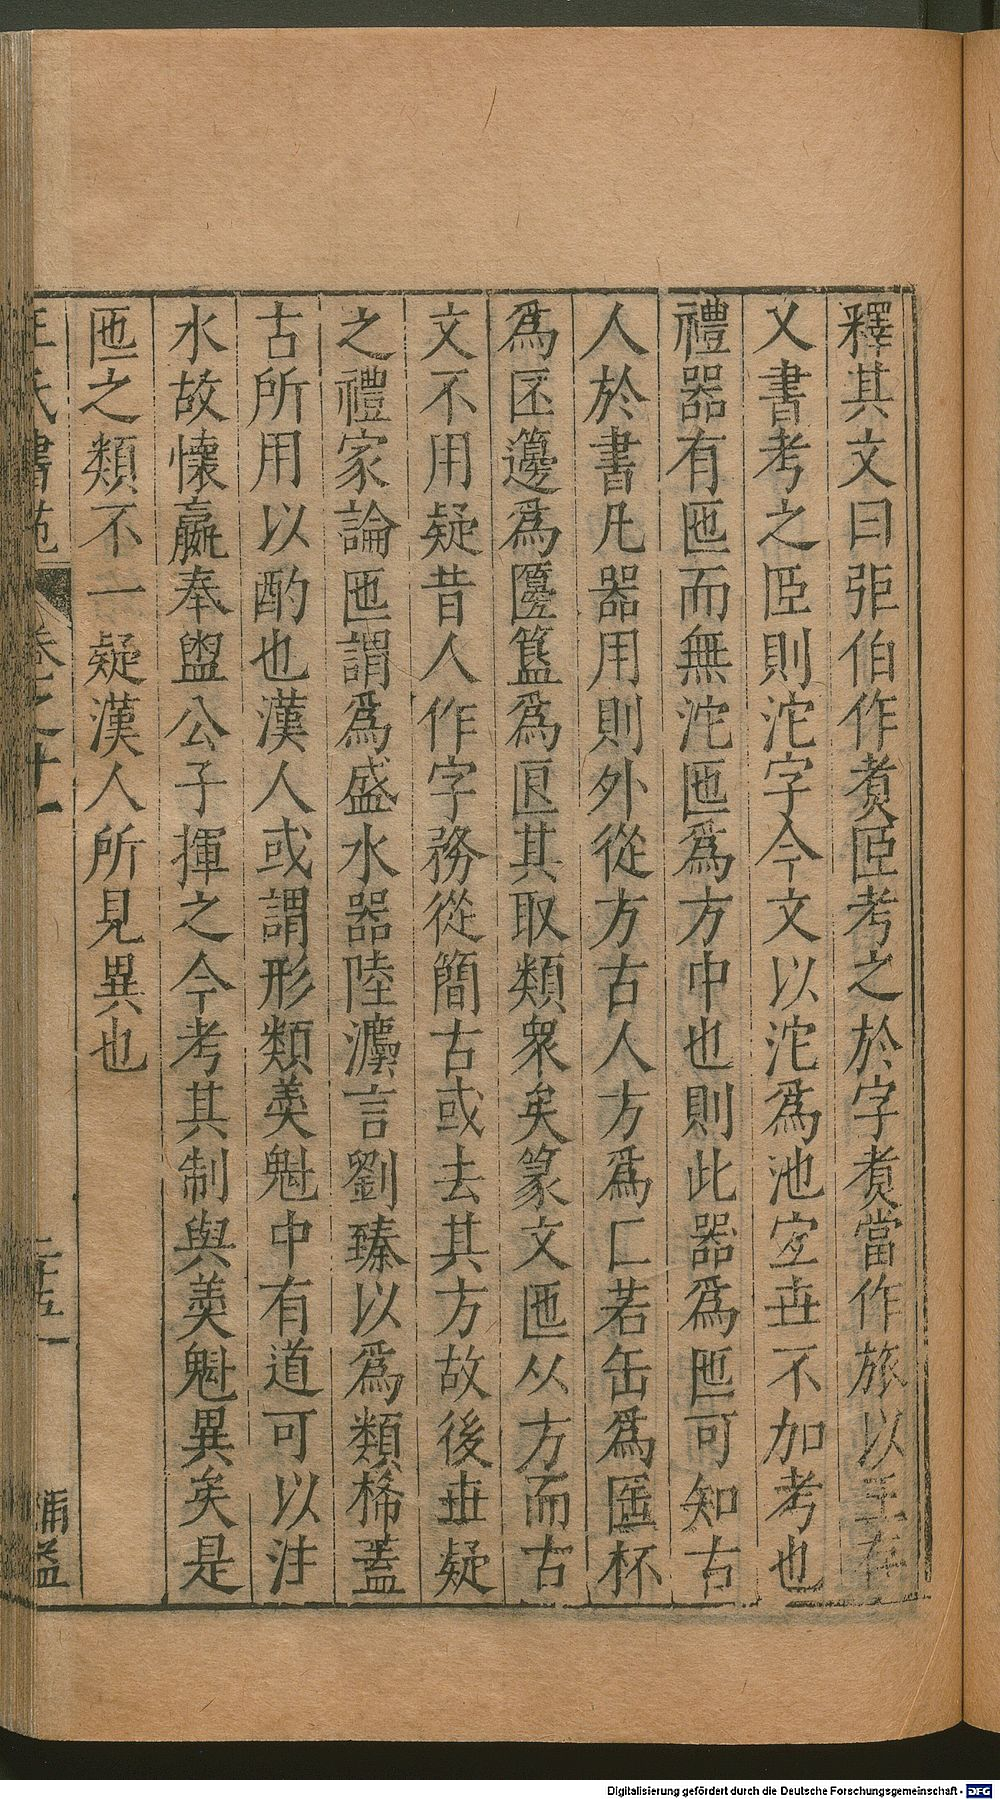 釋其文曰弡伯作煑𦣞考之於字煑當作旅以
又書考之𦣞則沱字今文以沱爲池宐丗不加考也
禮器有匜而無沱匜爲方中也則此器爲匜可知古
人於書凡器用則外從方古人方爲匚若缶爲匫杯
爲匥籩爲匽簋爲匜其取類衆矣篆文匜从方而古
文不用疑昔人作字務從簡古或去其方故後丗疑
之禮家論匜謂爲盛水器陸灋言劉臻以爲類桸蓋
古所用以酌也漢人或謂形類羮魁中有道可以注
水故懷嬴奉盥公子揮之今考其制與羮魁異矣是
匜之類不一疑漢人所見異也
王氏書苑 卷之十一 二十五 補益
Digitalisierung gefördert durch die Deutsche Forschungsgemeinschaft - DFG